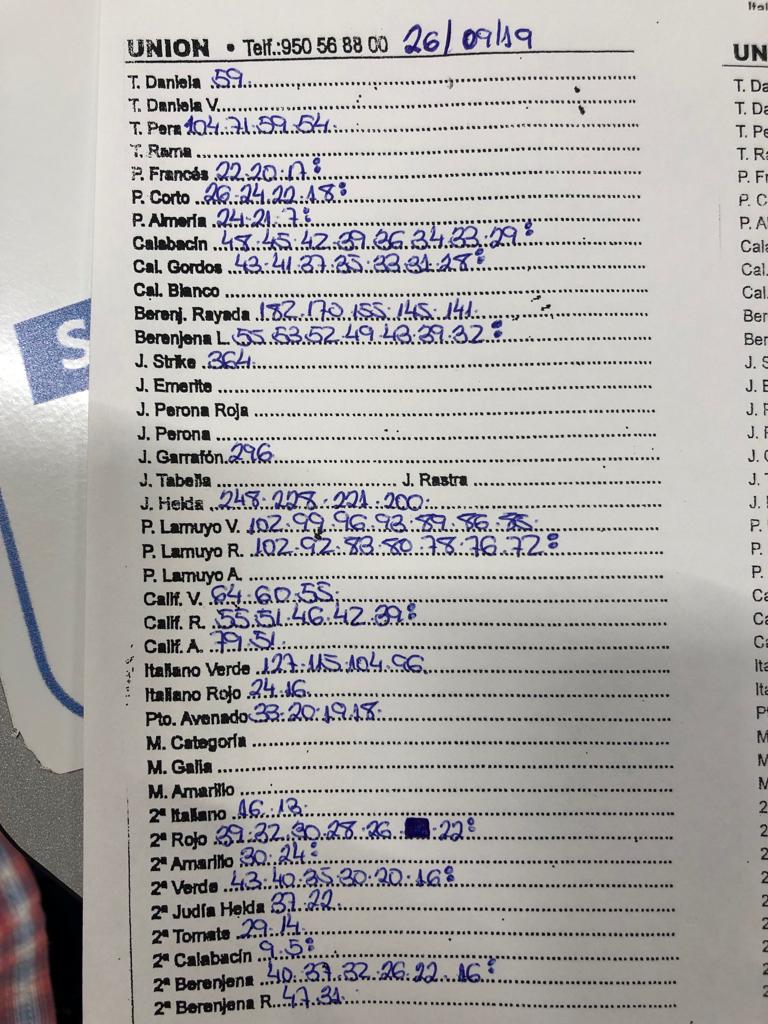 UNION • Telf.:950 56 88 00 26/09/19
T. Daniela 59
T. Daniela V.
T. Pera 104.71.59.54
T. Rama
P. Francés 22.20.17:
P. Corto 26.24.22.18:
P. Almería 24.21.7:
Calabacín 48.45.42.39.36.34.33.29:
Cal. Gordos 43.41.37.35.33.31.28:
Cal. Blanco
Berenj. Rayada 182.170.155.145.141
Berenjena L. 55.53.52.49.43.39.32:
J. Strike 364
J. Emerite
J. Perona Roja
J. Perona
J. Garrafón 296
J. Tabella J. Rastra
J. Helda 248.228.221.200
P. Lamuyo V. 102.99.96.93.89.86.85
P. Lamuyo R. 102.92.83.80.78.76.72:
P. Lamuyo A.
Calif. V. 64.60.55
Calif. R. 55.51.46.42.39:
Calif. A. 79.51
Italiano Verde 127.115.104.96
Italiano Rojo 24.16
Pto. Avenado 33.20.19.18
M. Categoría
M. Galia
M. Amarillo
2ª Italiano 16.13
2ª Rojo 39.32.30.28.26 22:
2ª Amarillo 30.24:
2ª Verde 43.40.35.30.20.16:
2ª Judía Helda 37.22
2ª Tomate 29.14
2ª Calabacín 9.5:
2ª Berenjena 40.37.32.26.22.16:
2ª Berenjena R. 47.31